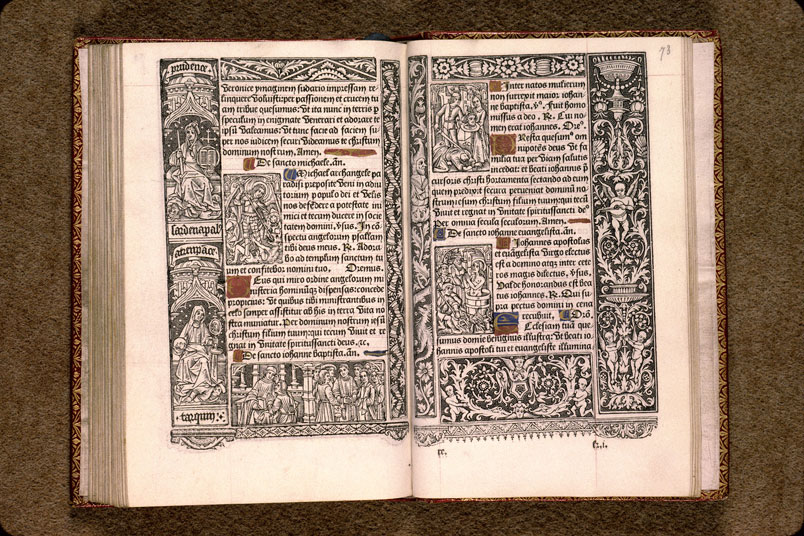 prudence
sardenapal
atrenpace
tarquin
Veronice ymaginem sudario impressam re-
linquere voluisti: per passionem et crucem tu
am tribue quesumus: Ut ita nunc in terris p
speculum in enigmate Venerari et adorare te
ipsū Valeamus: Ut tunc facie ad faciem su-
per nos iudicem securi Videamus te christum
dominum nostrum. Amen.
De sancto michaele. añ.
Michael archangele pa
radisi preposite Veni in adiu
torium populo dei et Velis
nos defēdere a potestate in
imici et tecum ducere in socie
tatem domini. Vsus. In cō
spectu angelorum psallam
tibi deus meus. R. Adora
bo ad templum sanctum tu
um et confitebor nomini tuo. Oremus.
Eus qui miro ordine angelorum mi
nisteria hominūq dispensas: concede
propicius: Ut quibus tibi ministrantibus in
celo semper assistitur ab his in terra Vita no
stra muniatur. Per dominum nostrum iesū
christum filium tuum: qui tecum Viuit et re
gnat in Vnitate spiritussancti deus. &c.
De sancto iohanne baptista. añ.
73
Inter natos mulierum
non surrexit maior iohan-
ne baptista. Vs. Fuit homo
missus a deo. R. Cui no-
men erat iohannes. Orō.
Resta quesum' om
nipotēs deus Vt fa
milia tua per Viam salutis
incedat: et beati iohannis p
cursoris christi hortamenta sectando ad eum
quem predixit secura perueniat dominū no-
strum iesum christum filium tuum: qui tecū
Viuit et regnat in Vnitate spiritussancti de'
Per omnia secula seculorum. Amen.
De sancto iohanne euangelista. añ.
Iohannes apostolus
et euangelista Virgo electus
est a domino atqz inter cete
ros magis dilectus. Vsus.
Valde honorandus est bea
tus iohannes. R. Qui su
pra pectus domini in cena
recubuit. Orō.
Cclesiam tuā que
sumus domine benignus illustra: Vt beati io
hannis apostoli tui et euangeliste illumina